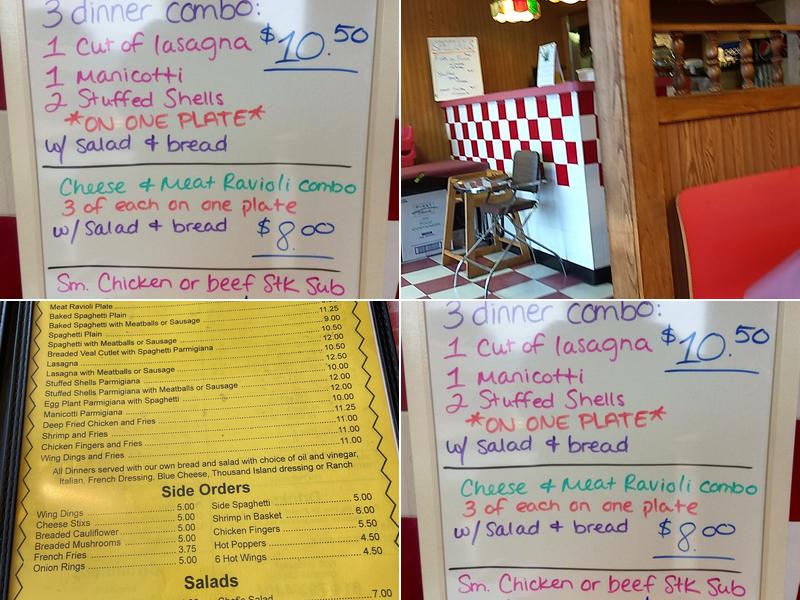 3 dinner combo:
1 Cut of lasagna $10.50
1 Manicotti
2 Stuffed Shells
*ON ONE PLATE*
w/ Salad & bread
Cheese & Meat Ravioli combo
3 of each on one plate
w/ Salad & bread $8.00
Sm. Chicken or beef Stk Sub
Meat Ravioli Plate
Baked Spaghetti Plain 11.25
Baked Spaghetti with Meatballs or Sausage 9.00
Spaghetti Plain 10.50
Spaghetti with Meatballs or Sausage 12.00
Breaded Veal Cutlet with Spaghetti Parmigiana 10.50
Lasagna 12.50
Lasagna with Meatballs or Sausage 10.00
Stuffed Shells Parmigiana 12.00
Stuffed Shells Parmigiana with Meatballs or Sausage 12.00
Egg Plant Parmigiana with Spaghetti 10.00
Manicotti Parmigiana 11.25
Deep Fried Chicken and Fries 11.00
Shrimp and Fries 11.00
Chicken Fingers and Fries 11.00
Wing Dings and Fries 11.00
All Dinners served with our own bread and salad with choice of oil and vinegar,
Italian, French Dressing, Blue Cheese, Thousand Island dressing or Ranch
Side Orders
Wing Dings 5.00
Cheese Stixs 5.00
Breaded Cauliflower 5.00
Breaded Mushrooms 5.00
French Fries 3.75
Onion Rings 5.00
Side Spaghetti 5.00
Shrimp in Basket 6.00
Chicken Fingers 5.50
Hot Poppers 4.50
6 Hot Wings 4.50
Salads
Chef's Salad 7.00
3 dinner combo:
1 Cut of lasagna $10.50
1 Manicotti
2 Stuffed Shells
*ON ONE PLATE*
w/ Salad & bread
Cheese & Meat Ravioli combo
3 of each on one plate
w/ Salad & bread $8.00
Sm. Chicken or beef Stk Sub